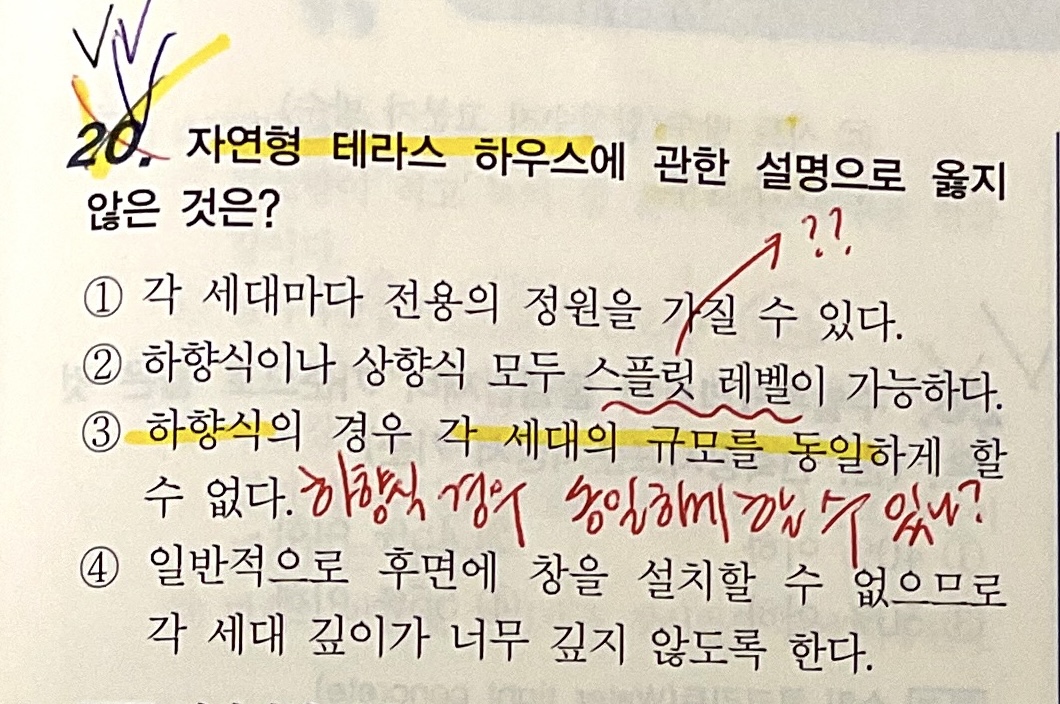 20. 자연형 테라스 하우스에 관한 설명으로 옳지
않은 것은?
??
① 각 세대마다 전용의 정원을 가질 수 있다.
② 하향식이나 상향식 모두 스플릿 레벨이 가능하다.
③ 하향식의 경우 각 세대의 규모를 동일하게 할
수 없다. 하향식 경우 동일하게 할 수 있나?
④ 일반적으로 후면에 창을 설치할 수 없으므로
각 세대 깊이가 너무 깊지 않도록 한다.